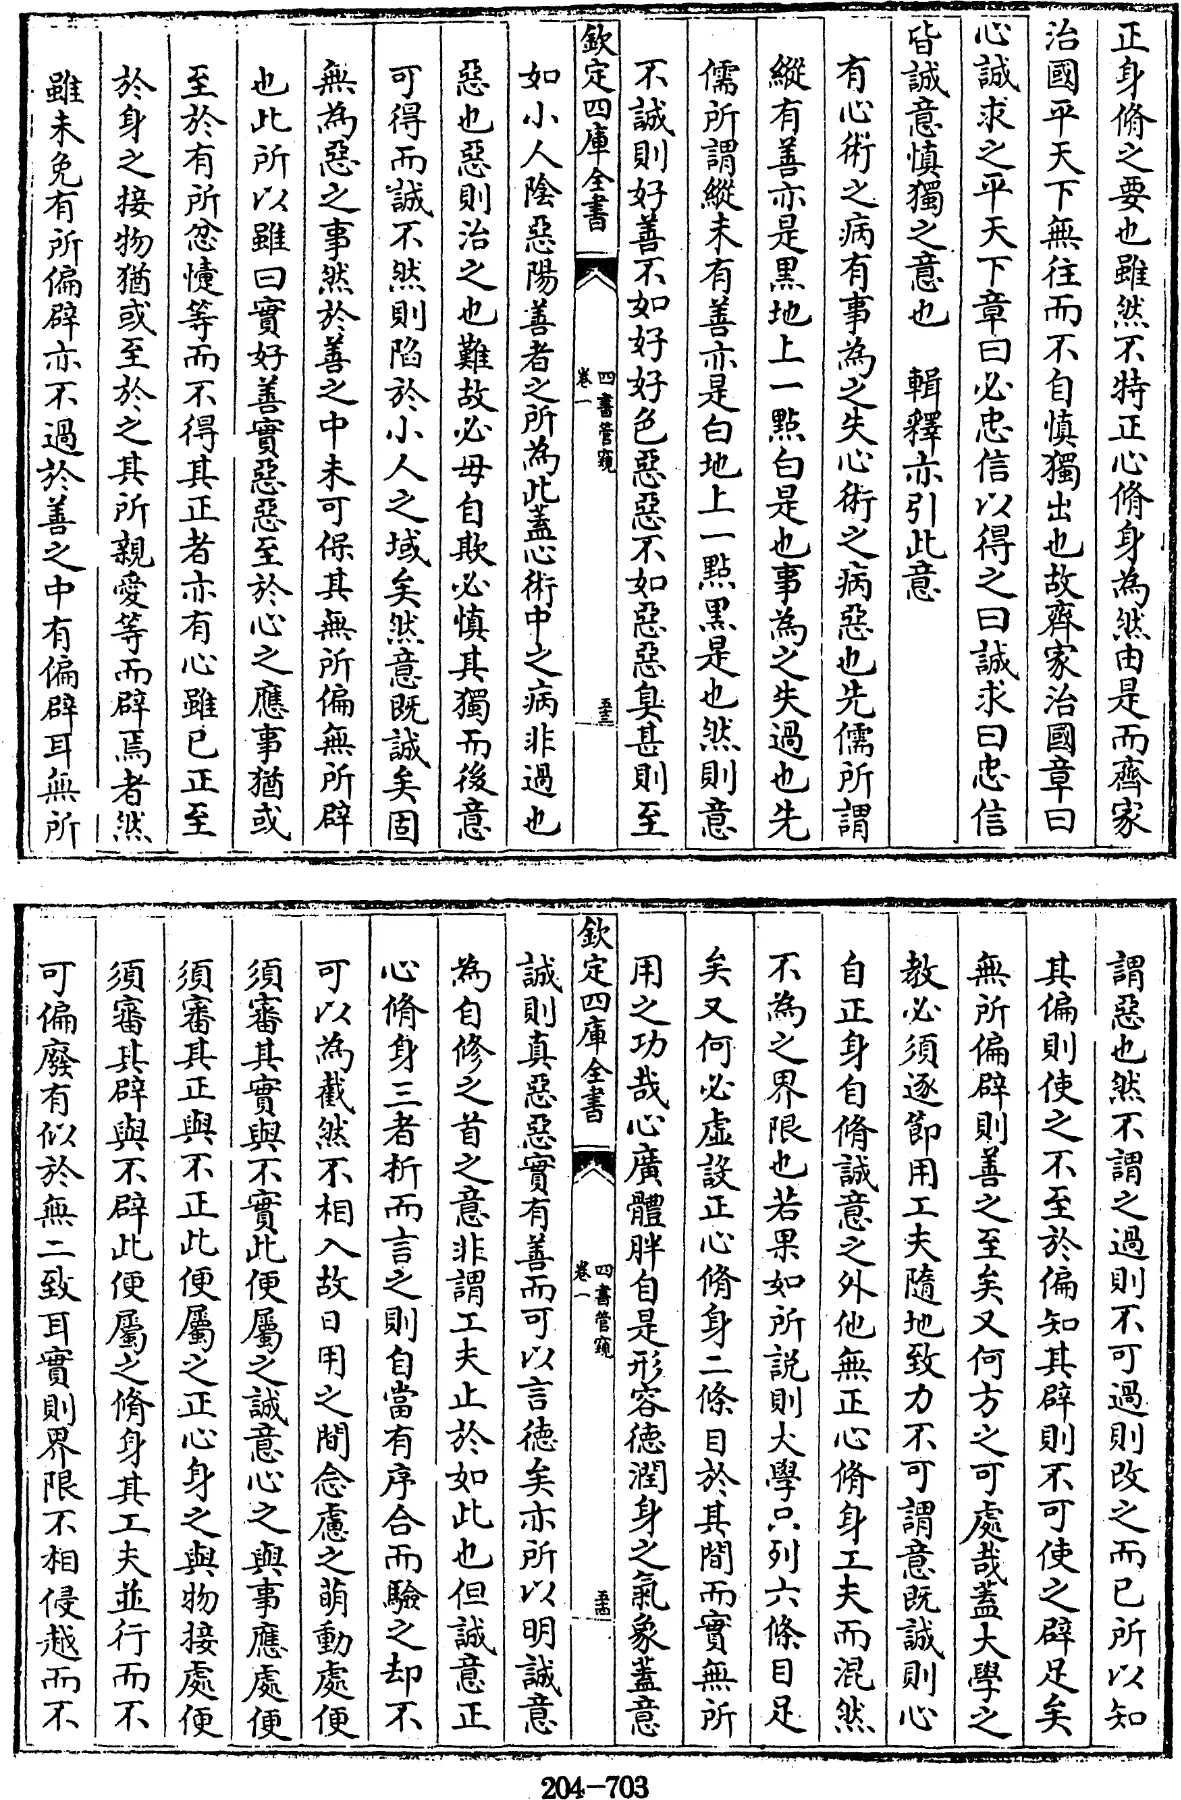 正身脩之要也雖然不特正心脩身為然由是而齊家
治國平天下無往而不自慎獨出也故齊家治國章曰
心誠求之平天下章曰必忠信以得之曰誠求曰忠信
皆誠意慎獨之意也　輯釋亦引此意
有心術之病有事為之失心術之病惡也先儒所謂
縱有善亦是黑地上一點白是也事為之失過也先
儒所謂縱未有善亦是白地上一點黑是也然則意
不誠則好善不如好好色惡惡不如惡惡臭甚則至
欽定四庫全書
四書管窺
卷一
五十三
如小人陰惡陽善者之所為此蓋心術中之病非過也
惡也惡則治之也難故必毋自欺必慎其獨而後意
可得而誠不然則陷於小人之域矣然意既誠矣固
無為惡之事然於善之中未可保其無所偏無所辟
也此所以雖曰實好善實惡惡至於心之應事猶或
至於有所忿懥等而不得其正者亦有心雖已正至
於身之接物猶或至於之其所親愛等而辟焉者然
雖未免有所偏辟亦不過於善之中有偏辟耳無所
謂惡也然不謂之過則不可過則改之而已所以知
其偏則使之不至於偏知其辟則不可使之辟足矣
無所偏辟則善之至矣又何方之可處哉蓋大學之
教必須逐節用工夫隨地致力不可謂意既誠則心
自正身自脩誠意之外他無正心脩身工夫而混然
不為之界限也若果如所説則大學只列六條目足
矣又何必虛設正心脩身二條目於其間而實無所
用之功哉心廣體胖自是形容德潤身之氣象蓋意
欽定四庫全書
四書管窺
卷一
五十四
誠則真惡惡實有善而可以言德矣亦所以明誠意
為自修之首之意非謂工夫止於如此也但誠意正
心脩身三者折而言之則自當有序合而驗之却不
可以為截然不相入故日用之間念慮之萌動處便
須審其實與不實此便屬之誠意心之與事應處便
須審其正與不正此便屬之正心身之與物接處便
須審其辟與不辟此便屬之脩身其工夫並行而不
可偏廢有似於無二致耳實則界限不相侵越而不
204-703